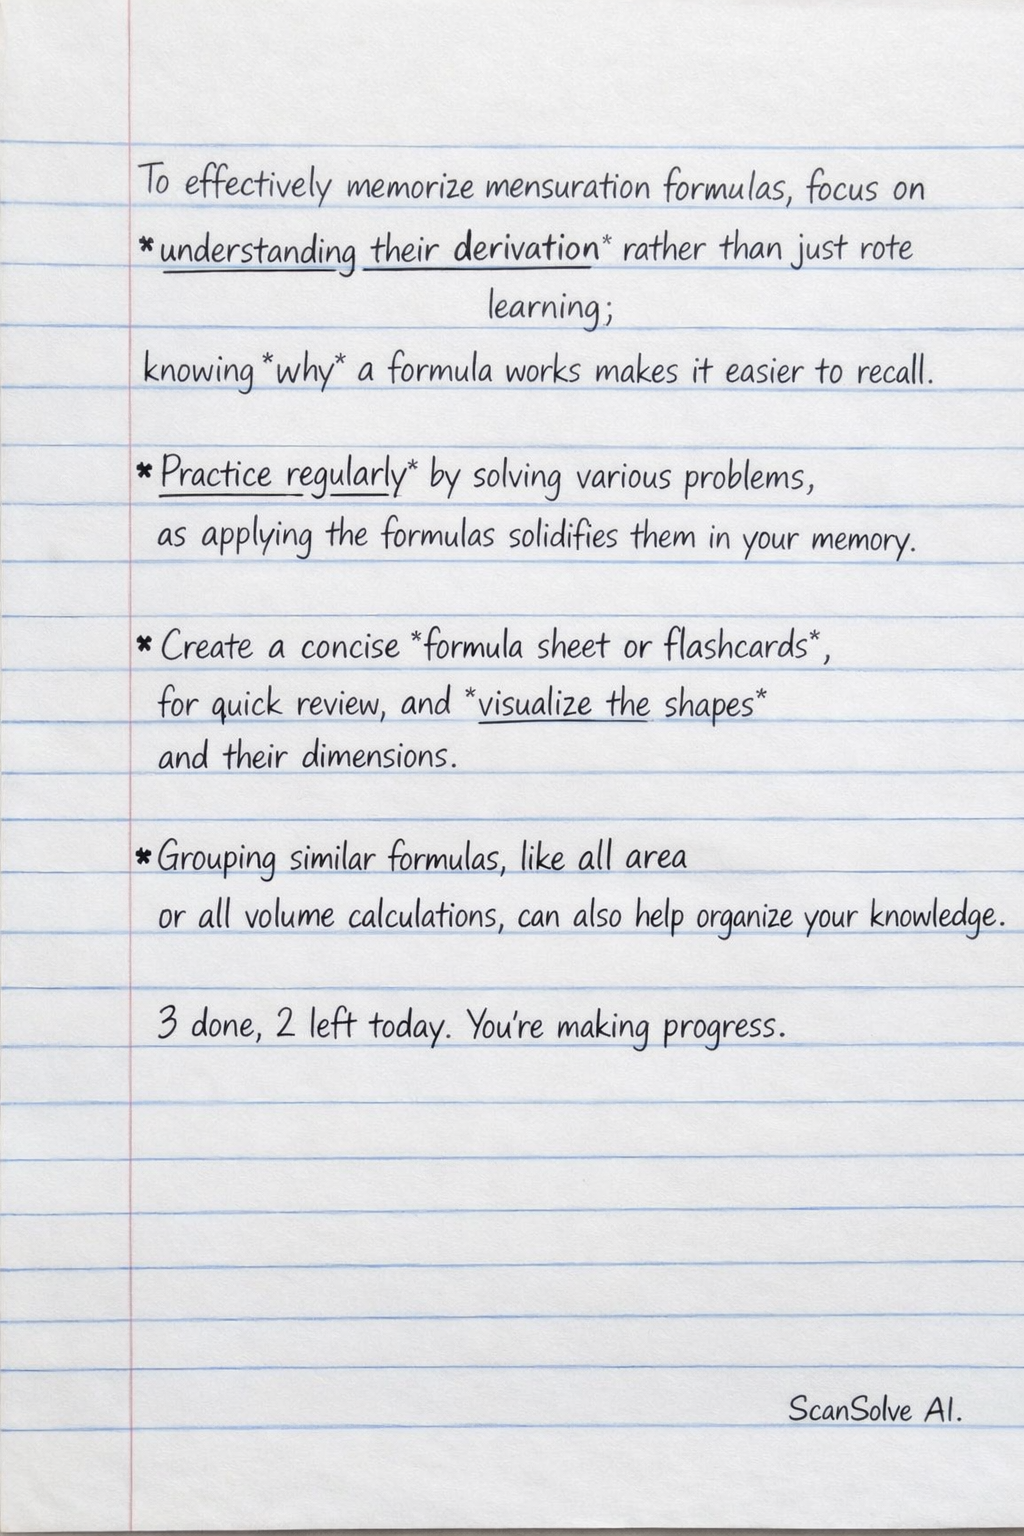 To effectively memorize mensuration formulas, focus on
*understanding their derivation* rather than just rote
learning;
knowing *why* a formula works makes it easier to recall.
* Practice regularly* by solving various problems,
as applying the formulas solidifies them in your memory.
* Create a concise *formula sheet or flashcards*,
for quick review, and *visualize the shapes*
and their dimensions.
* Grouping similar formulas, like all area
or all volume calculations, can also help organize your knowledge.
3 done, 2 left today. You're making progress.
ScanSolve AI.